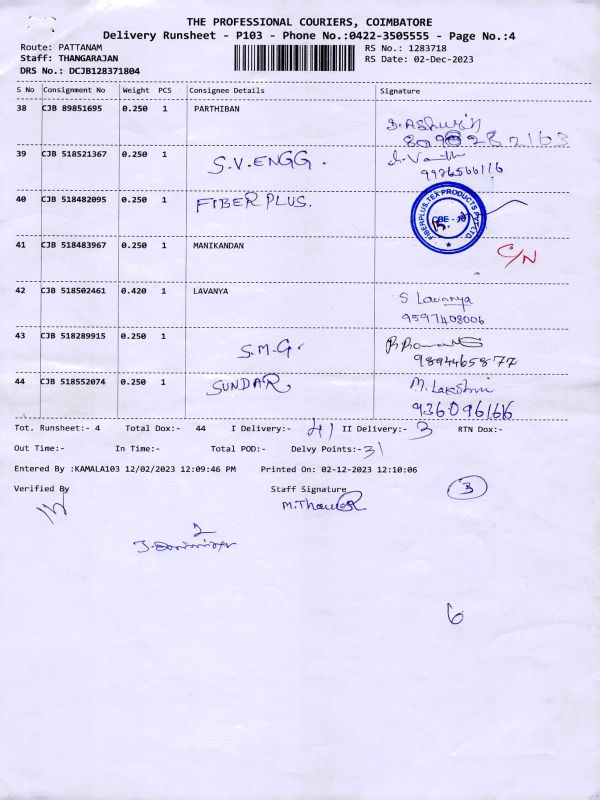 THE PROFESSIONAL COURIERS, COIMBATORE
Delivery Runsheet - P103 - Phone No.:0422-3505555 - Page No.:4
Route: PATTANAM RS No.: 1283718
Staff: THANGARAJAN RS Date: 02-Dec-2023
DRS No.: DCJB128371804
S No Consignment No Weight PCS Consignee Details Signature
38 CJB 89851695 0.250 1 PARTHIBAN
39 CJB 518521367 0.250 1 S.V. ENGG.
9976566116
40 CJB 518482095 0.250 1 FIBER PLUS.
FIBERPLUS-TEX PRODUCTS PVT LTD.
41 CJB 518483967 0.250 1 MANIKANDAN C/N
42 CJB 518502461 0.420 1 LAVANYA S. Lavanya
9597408006
43 CJB 518289915 0.250 1 S.M.G.
9894465877
44 CJB 518552074 0.250 1 SUNDAR M. Lakshmi
936096166
Tot. Runsheet:- 4 Total Dox:- 44 I Delivery:- 41 II Delivery:- 3 RTN Dox:-
Out Time:- In Time:- Total POD:- Delvy Points:- 31
Entered By :KAMALA103 12/02/2023 12:09:46 PM Printed On: 02-12-2023 12:10:06
Verified By Staff Signature 3
2
6